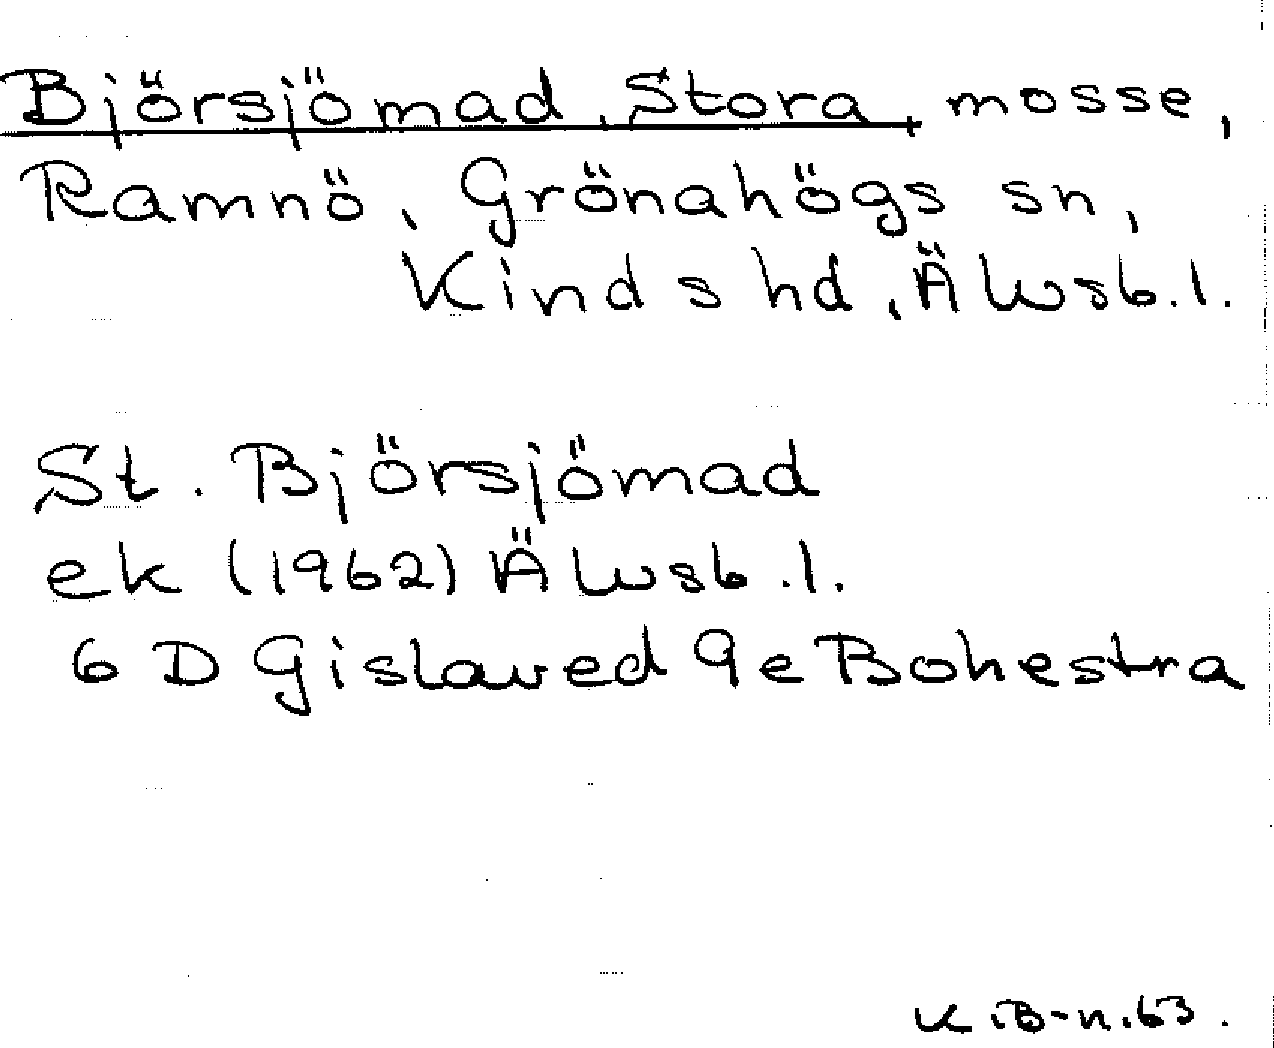 Björsjömad, Stora, mosse,
Ramnö, Grönahögs sn,
Kinds hd, Älvsb.l.
St. Björsjömad
ek (1962) Älvsb.l.
6 D Gislaved 9e Bohestra
K.B-n.63.